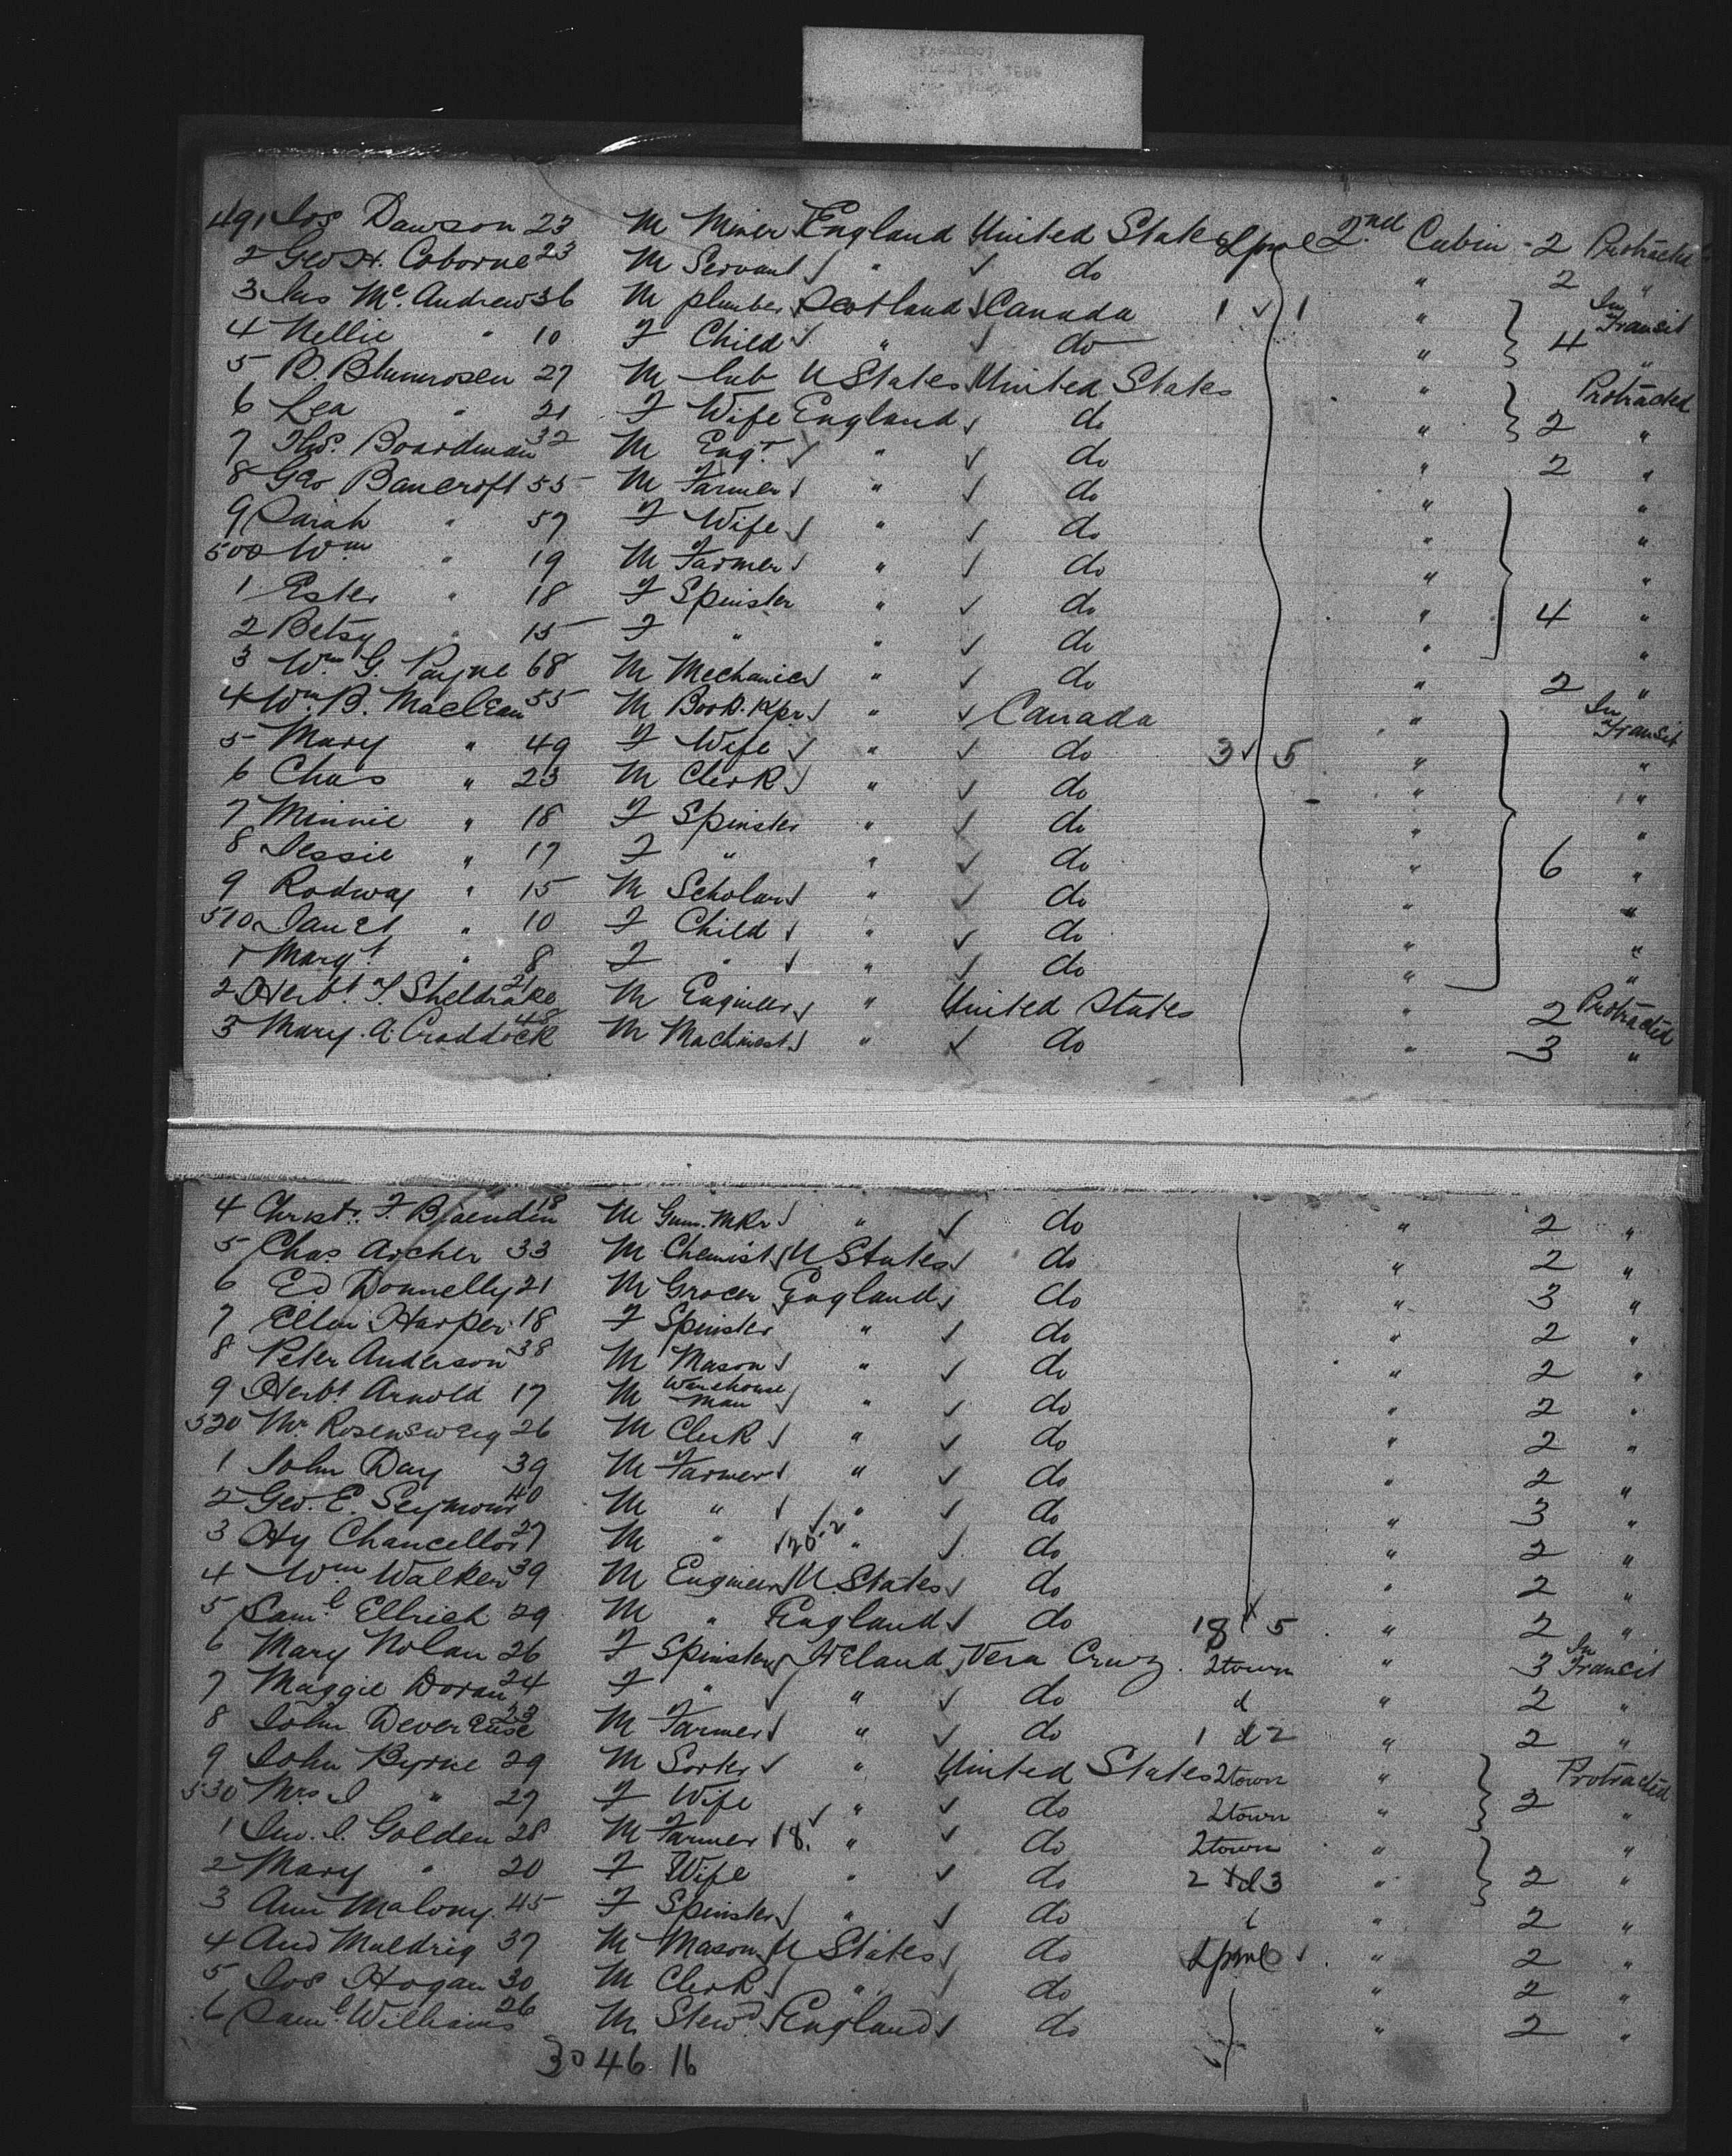 491 Jos Dawson 23 M Miner England United States Lpool 2nd Cabin - 2 Protracted
2 Geo H. Coborne 23 M Servant " do " 2 "
3 Jas Mc. Andrew 36 M plumber Scotland Canada 1 1 " In Transit
4 Nellie " 10 F Child " do " 4 "
5 B. Blumrosen 27 M U States United States " Protracted
6 Lea " 21 F Wife England do " 2 "
7 Thos. Boardman 32 M Engr. " do " 2 "
8 Geo Bancroft 55 M Farmer " do " "
9 Sarah " 57 F Wife " do " "
500 Wm " 19 M Farmer " do " "
1 Ester " 18 F Spinster " do " 4 "
2 Betsy " 15 F " " do " "
3 Wm G. Payne 68 M Mechanic " do " 2 "
4 Wm. B. Maclean 55 M Book. Kpr " Canada " In Transit
5 Mary " 49 F Wife " do 3 5 " "
6 Chas " 23 M Clerk " do " "
7 Minnie " 18 F Spinster " do " "
8 Jessie " 17 F " " do " 6 "
9 Rodway " 15 M Scholar " do " "
510 Janet " 10 F Child " do " "
1 Margt " 8 F " " do " "
2 Herbt. T. Sheldrake 21 M Engineer " United States " 2 Protracted
3 Mary. A. Craddock 48 M Machinest " do " 3 "
4 Christr. F. 18 M Gum. Mkr " do " 2 "
5 Chas. Archer 33 M Chemist U States do " 2 "
6 Ed Donnelly 21 M Grocer England do " 3 "
7 Ellen Harper 18 F Spinster " do " 2 "
8 Peter Anderson 38 M Mason " do " 2 "
9 Herbt Arnold 17 M Warehouse man " do " 2 "
520 Mr Rosensweig 26 M Clerk " do " 2 "
1 John Day 39 M Farmer " do " 2 "
2 Geo. E. Seymour 40 M " " do " 3 "
3 Hy Chancellor 27 M " 20-2 " do " 2 "
4 Wm Walker 39 M Engineer U. States do " 2 "
5 Saml Ellrich 29 M " England do 18 5 " 2 "
6 Mary Nolan 26 F Spinster Ireland Vera Cruz. 2town " 3 In Transit
7 Maggie Doran 24 F " " do d " 2 "
8 John Devereuse 23 M Farmer " do 1 d 2 " 2 "
9 John Byrne 29 M " United States 2town " Protracted
530 Mrs J " 27 F Wife " do 2town " 2 "
1 Jno. J. Golden 28 M Farmer 18. " do 2town " "
2 Mary " 20 F Wife " do 2 d 3 " 2 "
3 Ann Malony. 45 F Spinster " do " 2 "
4 And Muldrig 37 M Mason U States do Lpool " 2 "
5 Jos Hogan 30 M Clerk " do " 2 "
6 Saml Williams 26 M Stewd England do " 2 "
30 46. 16